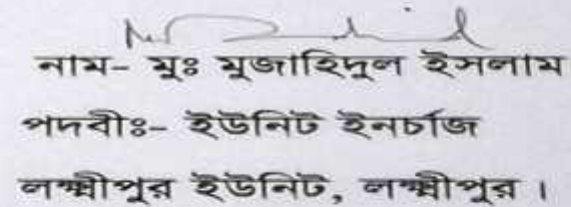 নাম- মুঃ মুজাহিদুল ইসলাম
পদবীঃ- ইউনিট ইনর্চাজ
লক্ষ্মীপুর ইউনিট, লক্ষ্মীপুর ।